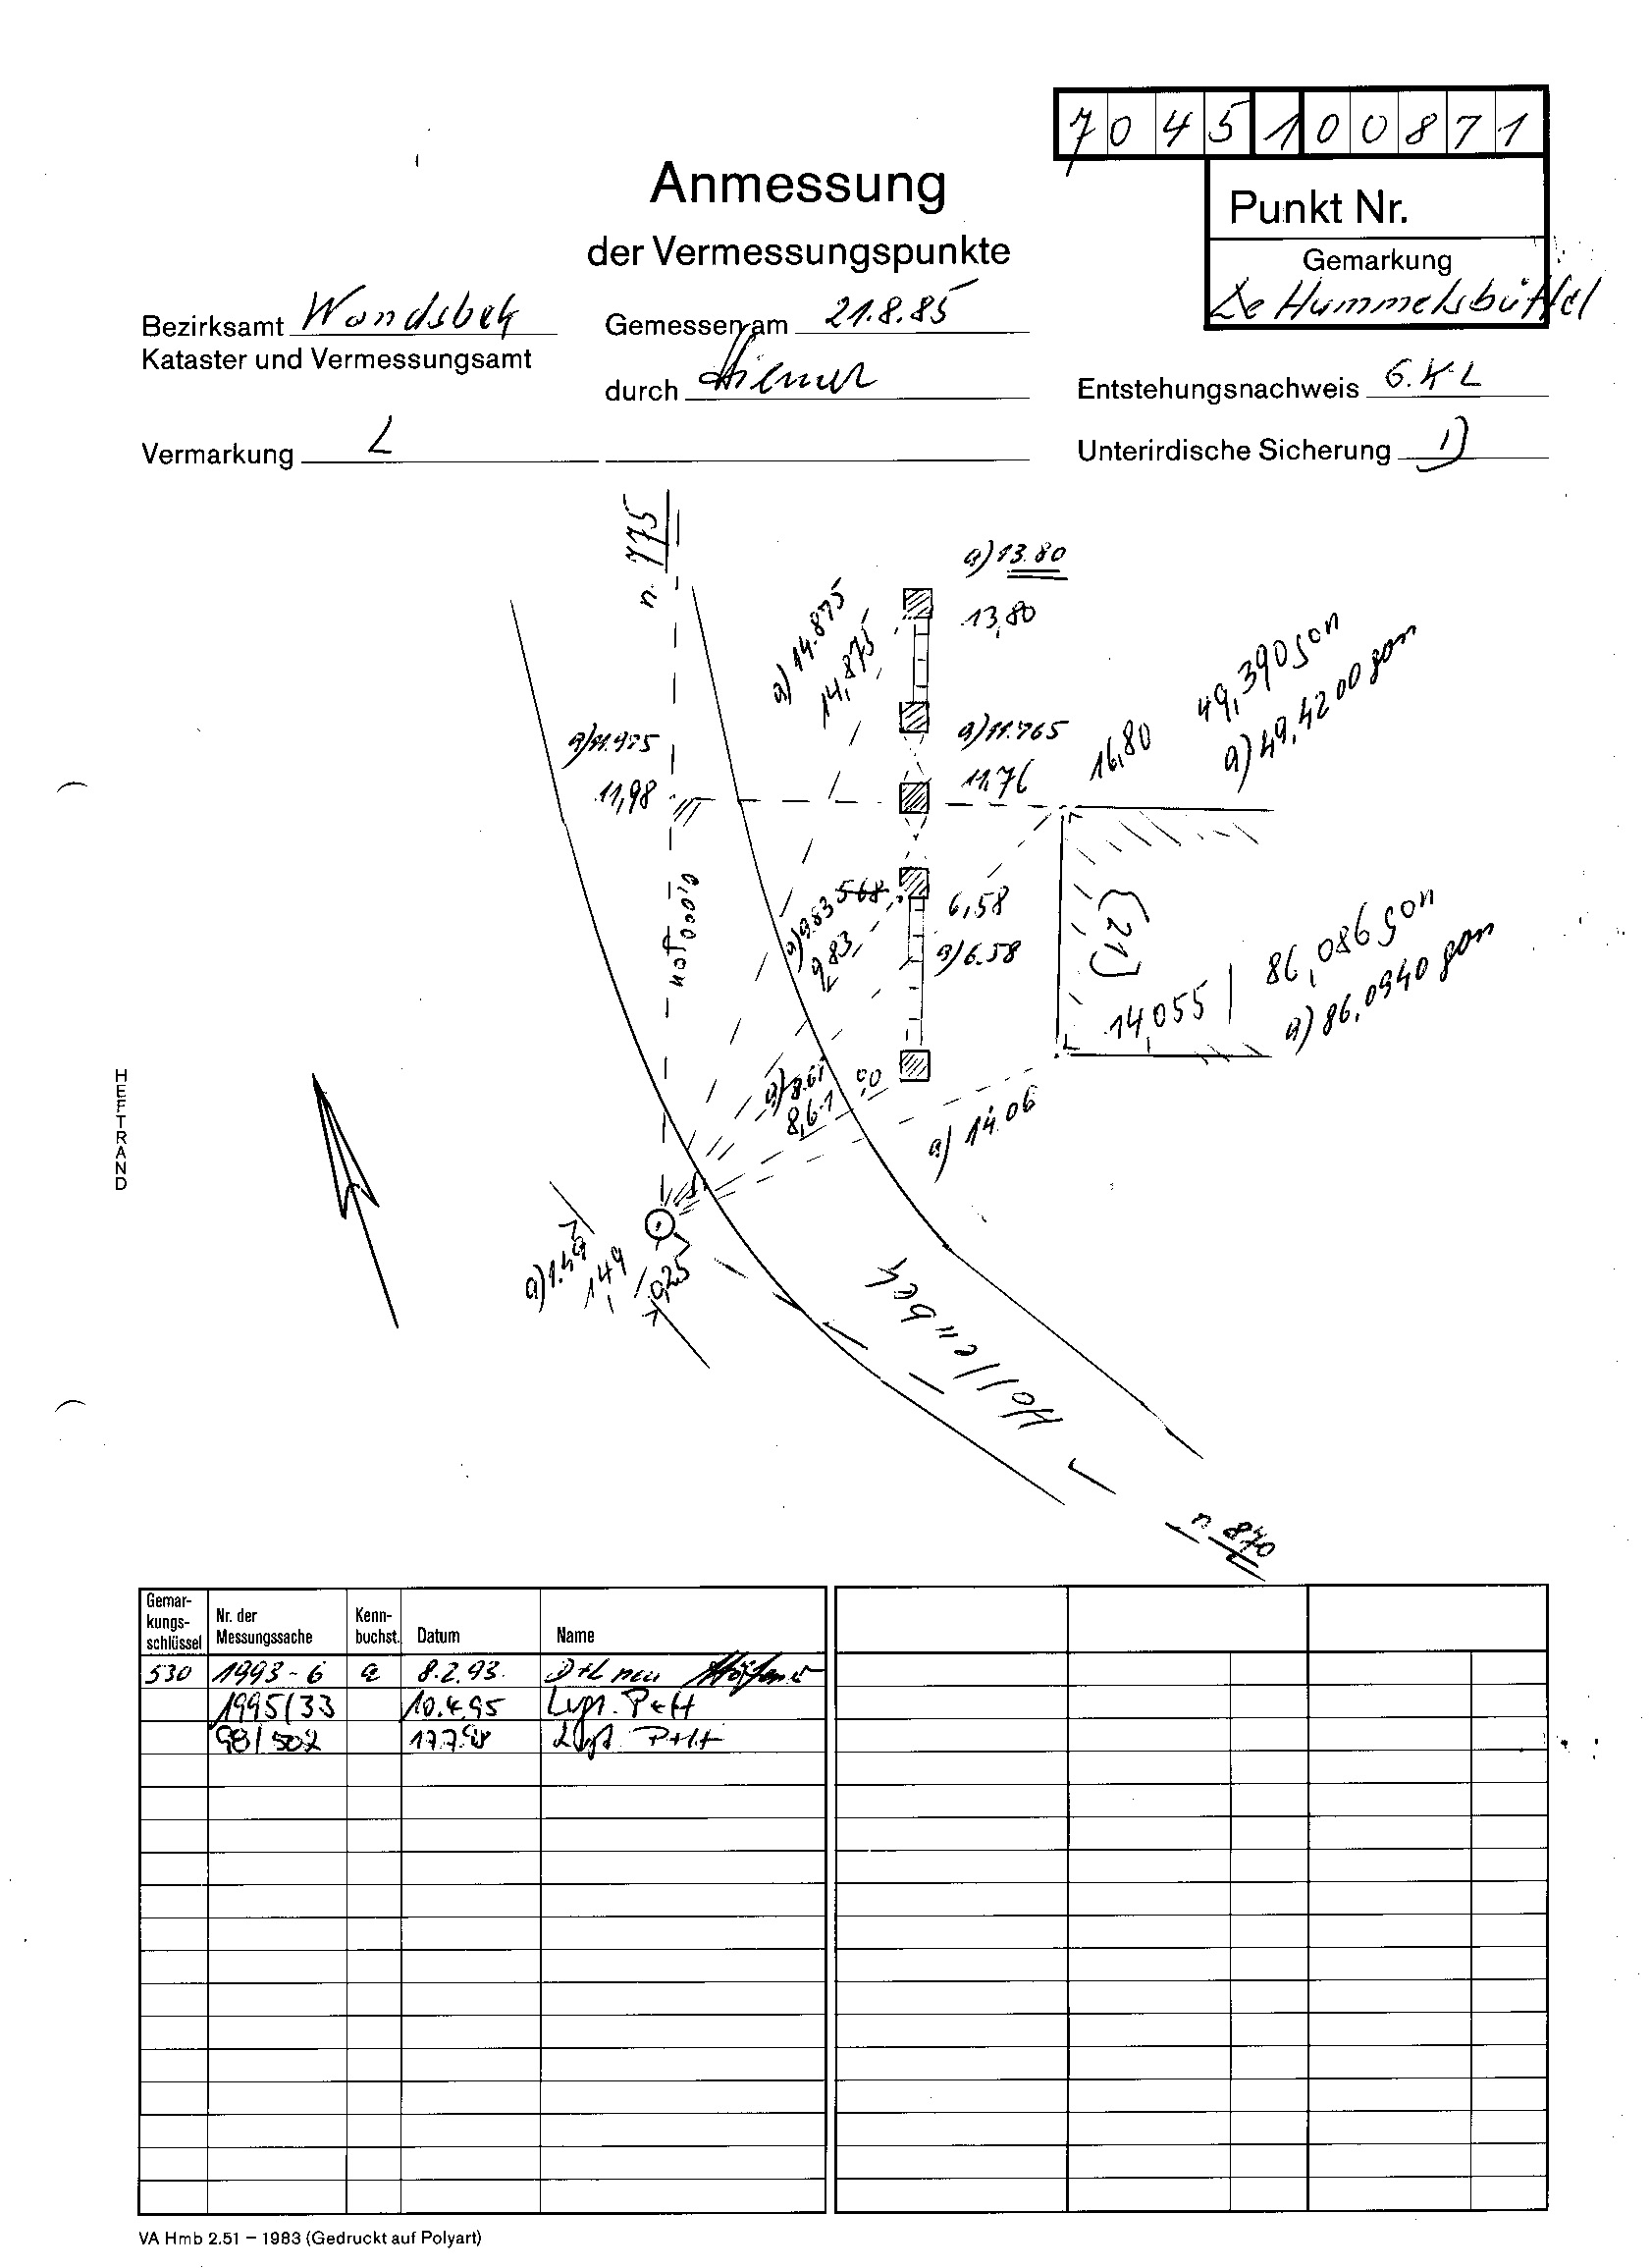 7 0 4 5 1 0 0 8 7 1
Anmessung
der Vermessungspunkte
Punkt Nr.
Gemarkung
Hummelsbüttel
Bezirksamt Wandsbek
Kataster und Vermessungsamt
Gemessen am 21.8.85
durch
Entstehungsnachweis G.K.L
Vermarkung L
Unterirdische Sicherung
n. 775
a) 13.80
13,80
a) 14.875
14,875
49,390 gon
a) 49,4200 gon
a) 11.975
11,98
a) 11.765
11,76
16,80
0,000 gon
a) 9.83
9,83
6,58
a) 6.58
(21)
14,055
86,086 gon
a) 86,0940 gon
a) 8.61
8,61
0,0
a) 14.06
a) 1.49
1,49
0,25
Hollenbek
n. 870
HEFTRAND
Gemar-
kungs-
schlüssel
Nr. der
Messungssache
Kenn-
buchst.
Datum
Name
530 1993-6 a 8.2.93. D+L neu
1995/33 10.4.95 P+H
98/502 17.7.98 P+H
VA Hmb 2.51 – 1983 (Gedruckt auf Polyart)